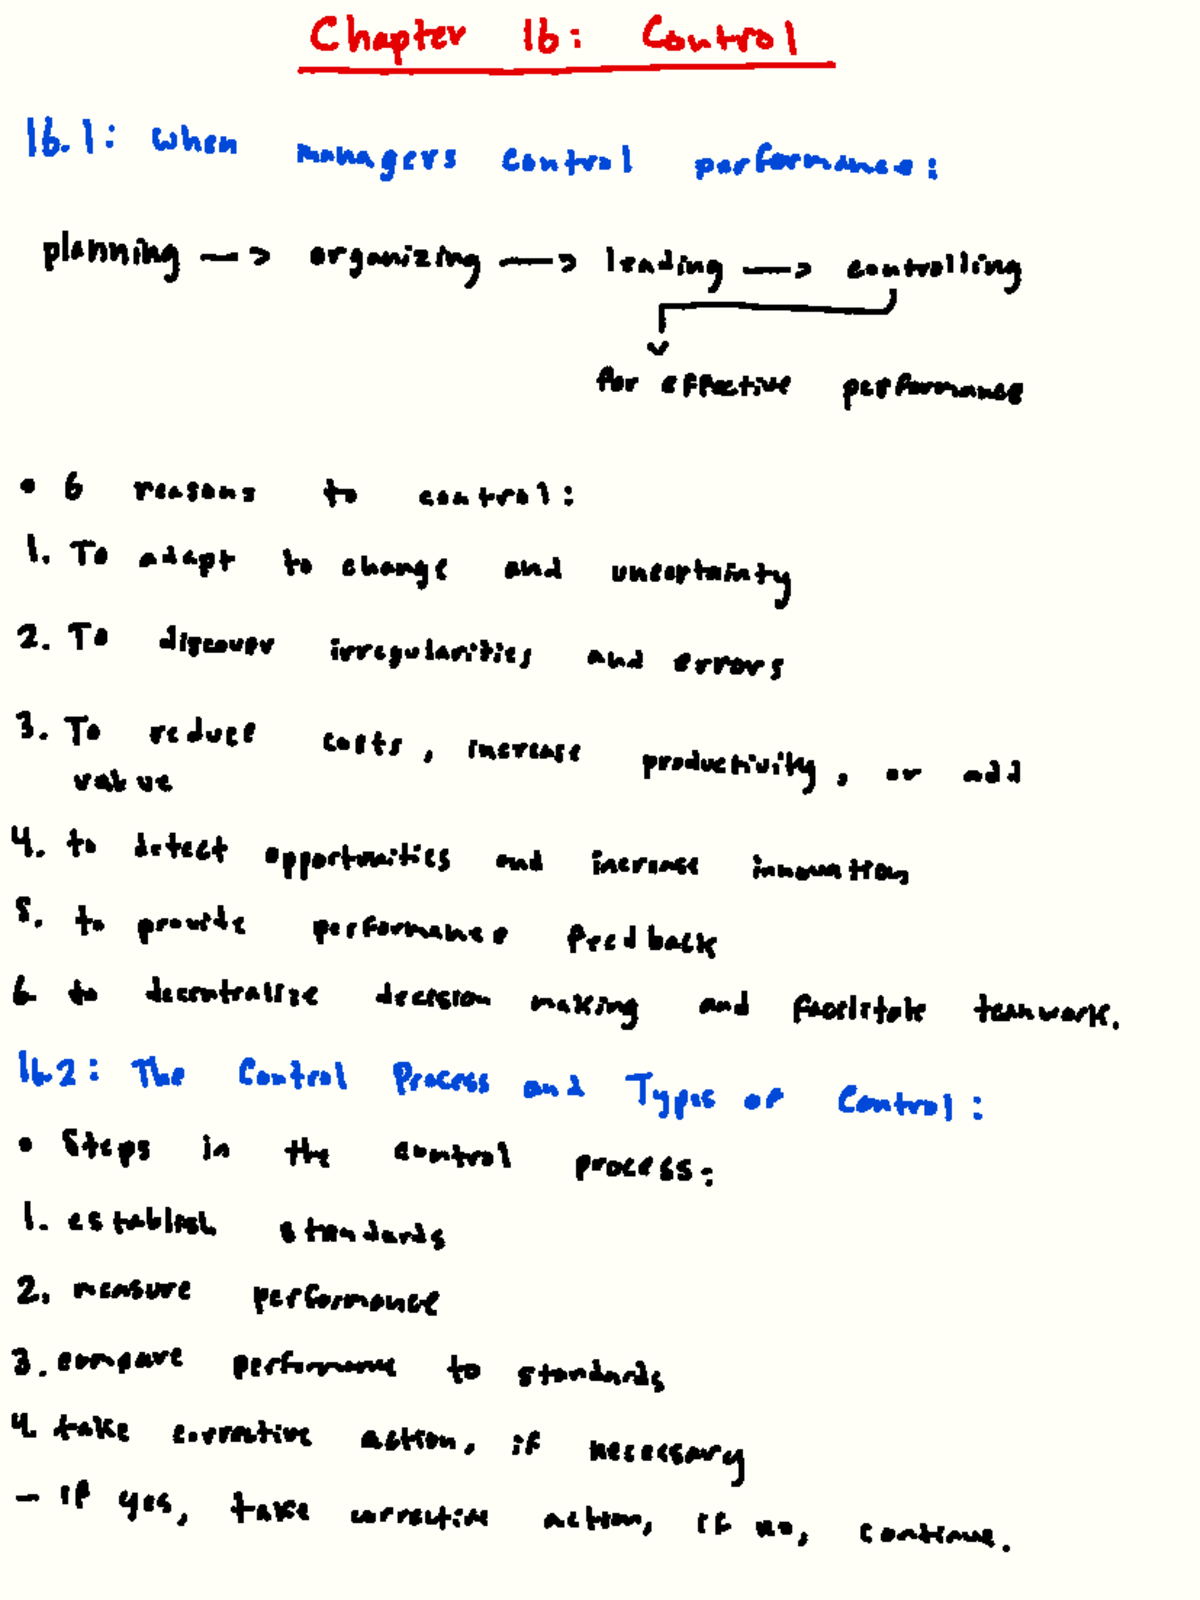 Chapter 16: Control
16.1: When managers control performance:
planning —> organizing —> leading —> controlling
for effective performance
• 6 reasons to control:
1. To adapt to change and uncertainty
2. To discover irregularities and errors
3. To reduce costs, increase productivity, or add
value
4. to detect opportunities and increase innovation
5. to provide performance feedback
6. to decentralize decision making and facilitate teamwork.
16.2: The Control Process and Types of Control:
• Steps in the control process:
1. establish standards
2. measure performance
3. compare performance to standards
4. take corrective action, if necessary
- if yes, take corrective action, if no, continue.